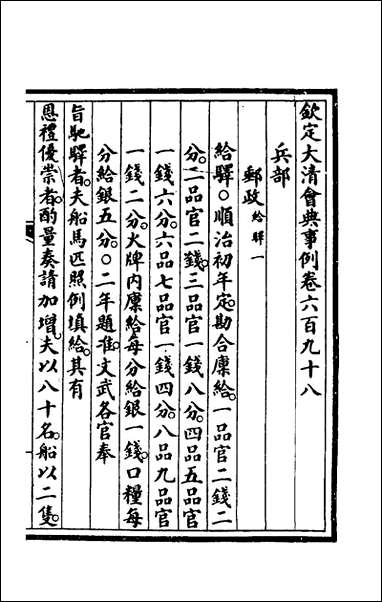 欽定大清會典事例卷六百九十八
兵部
郵政給驛一
給驛○順治初年定勘合廩給一品官二錢二
分二品官二錢三品官一錢八分四品五品官
一錢六分六品七品官一錢四分八品九品官
一錢二分火牌內廩給每分給銀一錢口糧每
分給銀五分○二年題准文武各官奉
旨馳驛者夫船馬匹照例填給其有
恩禮優崇者酌量奏請加增夫以八十名船以二隻